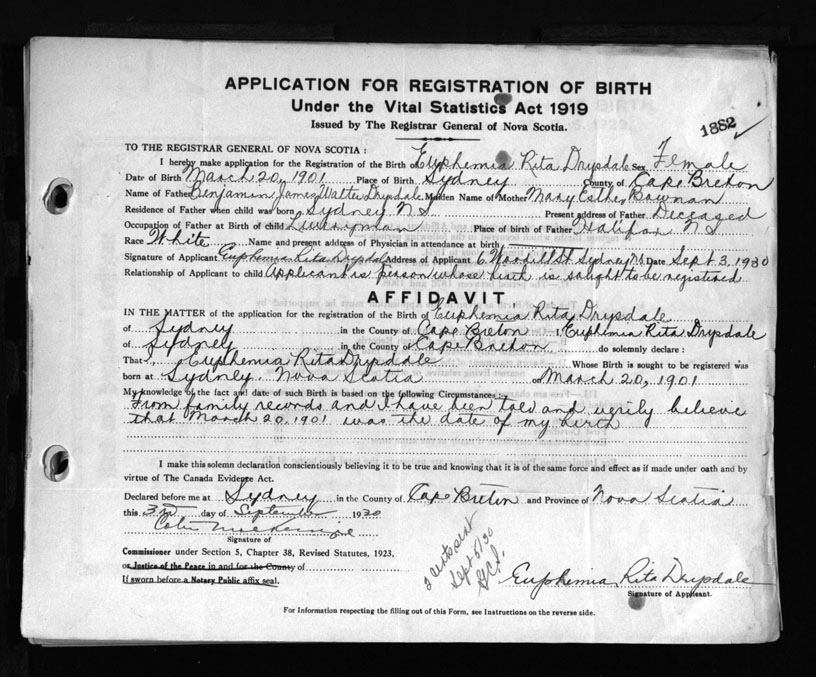 APPLICATION FOR REGISTRATION OF BIRTH
Under the Vital Statistics Act 1919
Issued by The Registrar General of Nova Scotia.
1882 ✓
TO THE REGISTRAR GENERAL OF NOVA SCOTIA:
I hereby make application for the Registration of the Birth of Euphemia Rita Drysdale Sex Female
Date of Birth March 20, 1901 Place of Birth Sydney County of Cape Breton
Name of Father Benjamin James Walter Drysdale Maiden Name of Mother Mary Esther Bownan
Residence of Father when child was born Sydney N.S. Present address of Father Deceased
Occupation of Father at Birth of Child Liveryman Place of birth of Father Halifax N.S
Race White Name and present address of Physician in attendance at birth
Signature of Applicant Euphemia Rita Drysdale Address of Applicant 6 Woodill St Sydney N.S. Date Sept 3, 1930
Relationship of Applicant to child Applicant is person whose birth is sought to be registered
AFFIDAVIT
IN THE MATTER of the application for the registration of the Birth of Euphemia Rita Drysdale
of Sydney in the County of Cape Breton I, Euphemia Rita Drysdale
of Sydney in the County of Cape Breton do solemnly declare:
That I, Euphemia Rita Drysdale Whose Birth is sought to be registered was
born at Sydney Nova Scotia on March 20, 1901
My knowledge of the fact and date of such Birth is based on the following Circumstances:-
From family records and I have been told and verily believe
that March 20, 1901 was the date of my birth
I make this solemn declaration conscientiously believing it to be true and knowing that it is of the same force and effect as if made under oath and by
virtue of The Canada Evidence Act.
Declared before me at Sydney in the County of Cape Breton and Province of Nova Scotia
this 3rd day of September 1930
Colin Mackenzie
Signature of
Commissioner under Section 5, Chapter 38, Revised Statutes, 1923,
or Justice of the Peace in and for the County of
If sworn before a Notary Public affix seal.
Sept 5/30
Euphemia Rita Drysdale
Signature of Applicant.
For Information respecting the filling out of this Form, see Instructions on the reverse side.